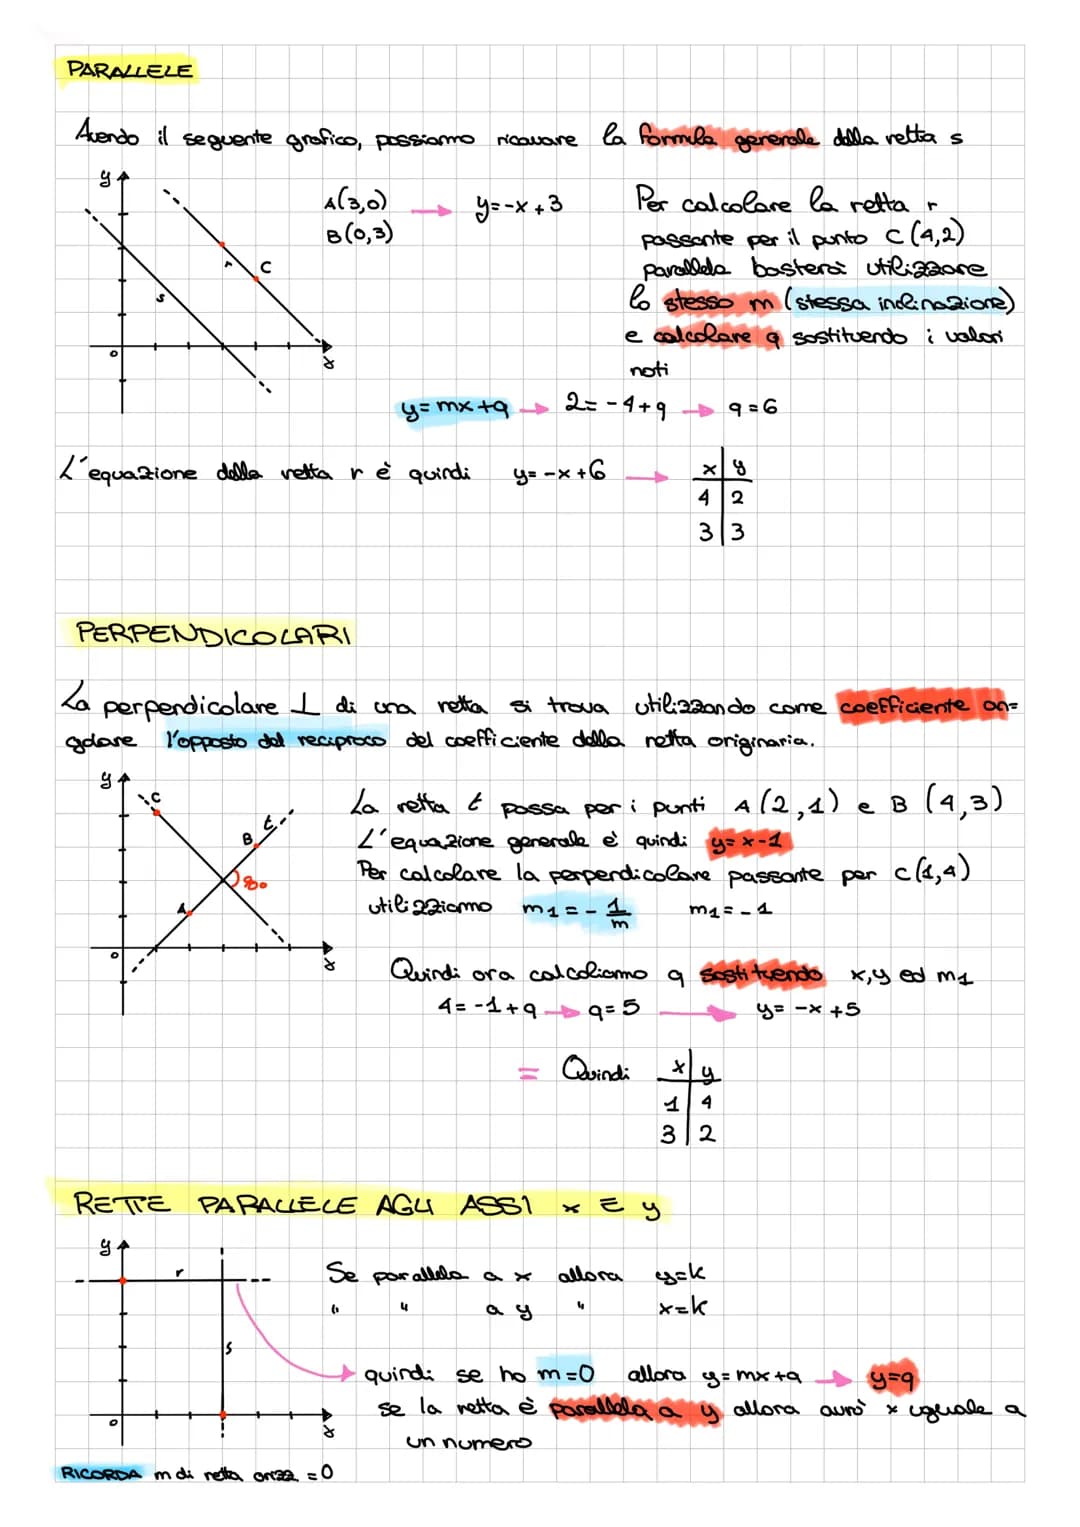 PARALLELE
Avendo il seguente grafico, possiamo ricavare la formula generale della retta s
y
A(3,0) → y=-x+3
B(0,3)
Per calcolare la retta r
passante per il punto C(4,2)
parallela basterà utilizzare
lo stesso m (stessa inclinazione)
e calcolare q sostituendo i valori
noti
r
C
s
0
x
y=mx+q → 2=-4+q → q=6
L'equazione della retta r è quindi y=-x+6 →
x y
4 2
3 3
PERPENDICOLARI
La perpendicolare ⊥ di una retta si trova utilizzando come coefficiente an=
golare l'opposto del reciproco del coefficiente della retta originaria.
y
C
B
t
90°
A
0
x
La retta t passa per i punti A(2,1) e B(4,3)
L'equazione generale è quindi y=x-1
Per calcolare la perpendicolare passante per C(1,4)
utilizziamo m1=-1/m m1=-1
Quindi ora calcoliamo q sostituendo x,y ed m1
4=-1+q → q=5 → y=-x+5
= Quindi
x y
1 4
3 2
RETTE PARALLELE AGLI ASSI x E y
y
r
s
0
x
Se parallela a x allora y=k
" " a y " x=k
quindi se ho m=0 allora y=mx+q → y=q
se la retta è parallela a y allora avrò x uguale a
un numero
RICORDA m di retta orizz. =0